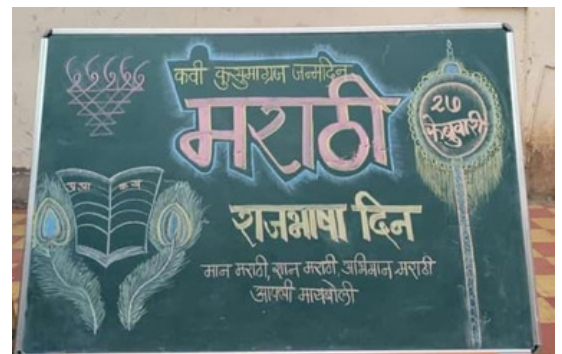 कवी कुसुमाग्रज जन्मदिन
मराठी
२७
फेब्रुवारी
राजभाषा दिन
अ आ क ख
मान मराठी, शान मराठी, अभिमान मराठी
आपली मायबोली